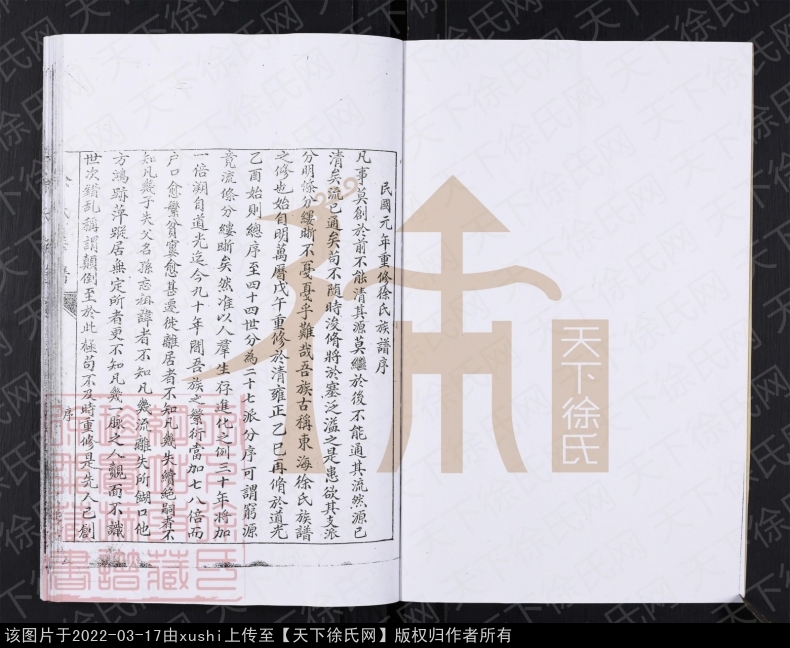 民國元年重修徐氏族譜序
凡事莫創於前不能清其源莫繼於後不能通其流然源已
清矣流已通矣苟不隨時浚脩將於塞泛溢之是患欲其支派
分明條分縷晰不戛戛乎難哉吾族古稱東海徐氏族譜
之修也始自明萬曆戊午重修於清雍正乙巳再脩於道光
乙酉始則總序至四十四世分為二十七派分序可謂窮源
竟流條分縷晰矣然准以人羣生存進化之例三十年將加
一倍溯自道光迄今九十年間吾族之繁衍當加七八倍而
户口愈繁貧窶愈甚遷徙離居者不知凡幾失續絕嗣者不
知凡幾子失父名孫忘祖諱者不知凡幾流離失所餬口他
方鴻跡萍蹤居無定所者更不知凡幾一脈之人覿面不識
世次錯乱稱謂顛倒至於此極苟不及時重修是先人已創
徐氏族譜
序
天下徐氏
天下徐氏网
该图片于2022-03-17由xushi上传至【天下徐氏网】版权归作者所有